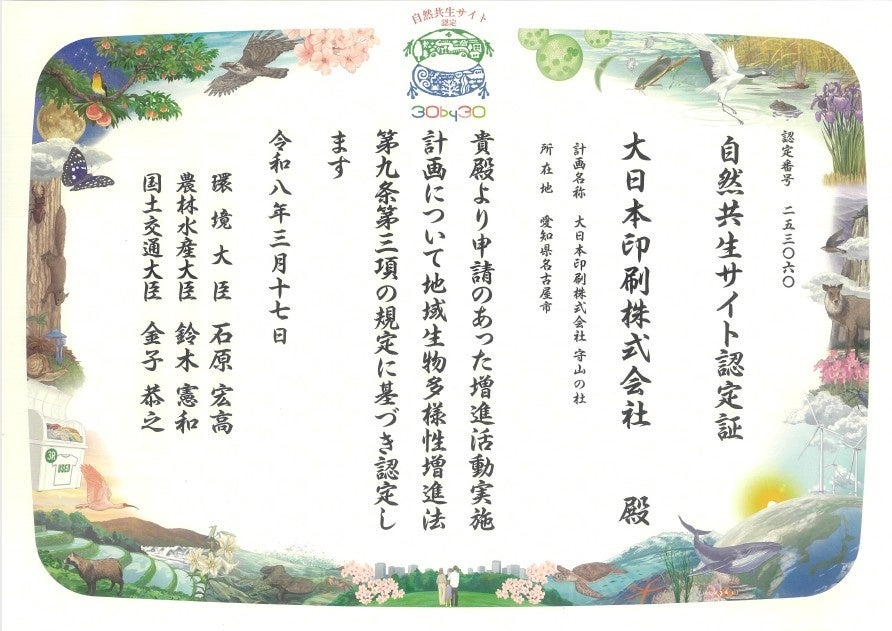 自然共生サイト
認定
30by30
認定番号　二五三〇六〇
自然共生サイト認定証
大日本印刷株式会社　殿
計画名称　大日本印刷株式会社 守山の杜
所在地　愛知県名古屋市
貴殿より申請のあった増進活動実施
計画について地域生物多様性増進法
第九条第三項の規定に基づき認定し
ます
令和八年三月十七日
環境大臣　石原宏高
農林水産大臣　鈴木憲和
国土交通大臣　金子恭之
3R
USED